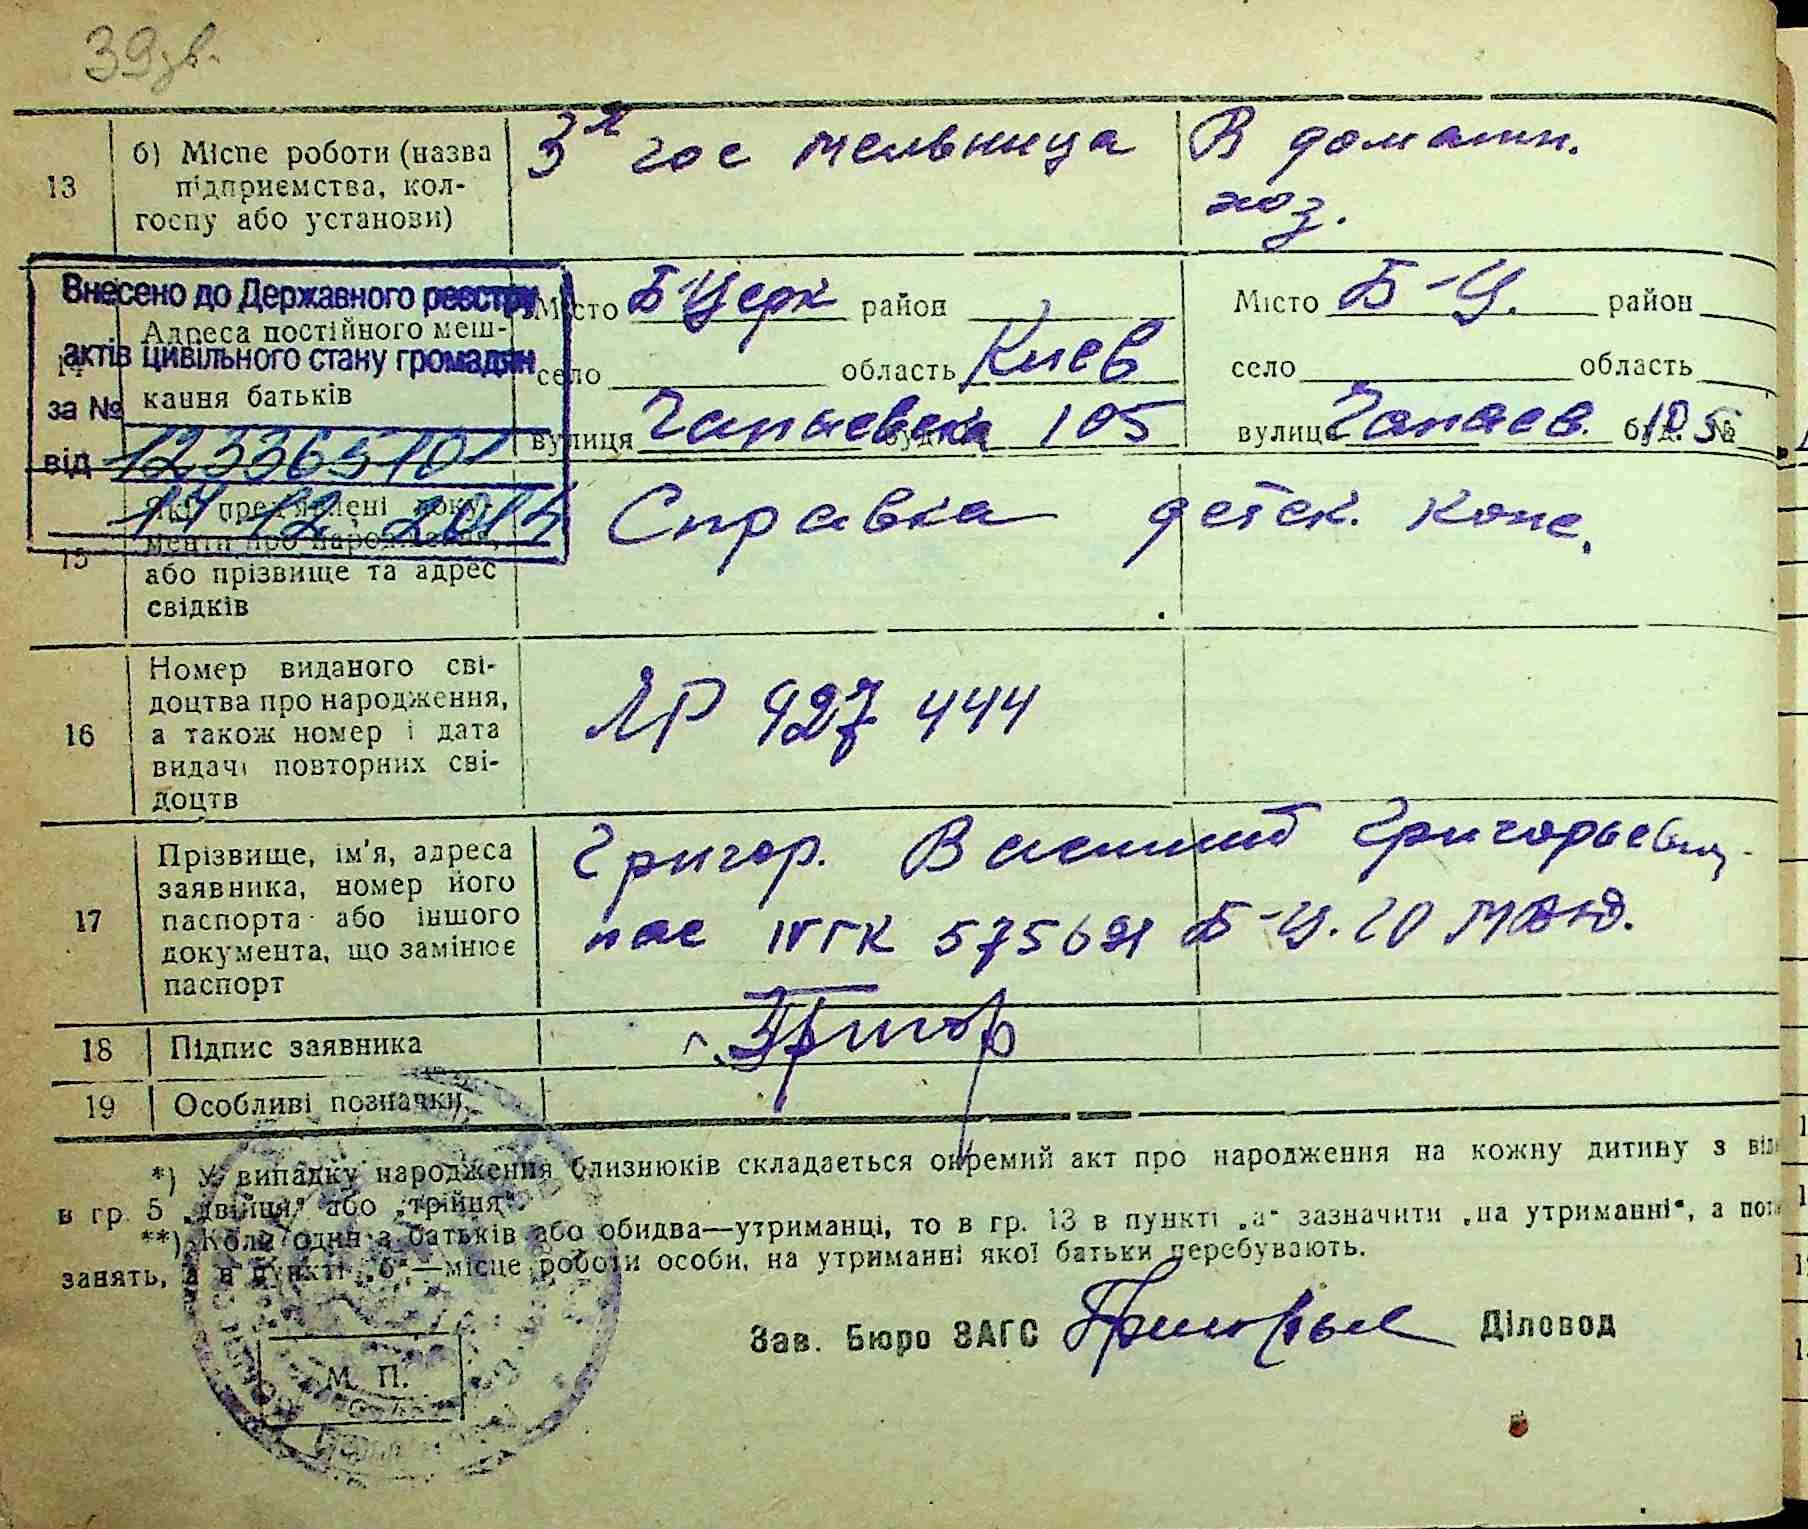 39 зв.
13
б) Місце роботи (назва
підприємства, кол-
госпу або установи)
3я гос мельница
В домашн.
хоз.
Внесено до Державного реєстру
актів цивільного стану громадян
за №
від
14
Адреса постійного меш-
кання батьків
Місто Б Церк район
село область Киев
вулиця Чапаевска 105
Місто Б-Ц. район
село область
вулиця Чапаев. буд. № 105
15
Які пред'явлені доку-
менти про народження,
або прізвище та адрес
свідків
Справка детск. конс.
16
Номер виданого сві-
доцтва про народження,
а також номер і дата
видачі повторних сві-
доцтв
ЯР 927 444
17
Прізвище, ім'я, адреса
заявника, номер його
паспорта або іншого
документа, що замінює
паспорт
Григор. Василий Григорьевич
пас IV ГК 575691 Б-Ц. ГО
18
Підпис заявника
19
Особливі позначки
*) У випадку народження близнюків складається окремий акт про народження на кожну дитину з
в гр. 5 „двійця" або „трійня".
**) Коли один з батьків або обидва—утриманці, то в гр. 13 в пункті „а" зазначити „на утриманні", а
занять, а в пункті „б"—місце роботи особи, на утриманні якої батьки перебувають.
Зав. Бюро ЗАГС
Діловод
М. П.